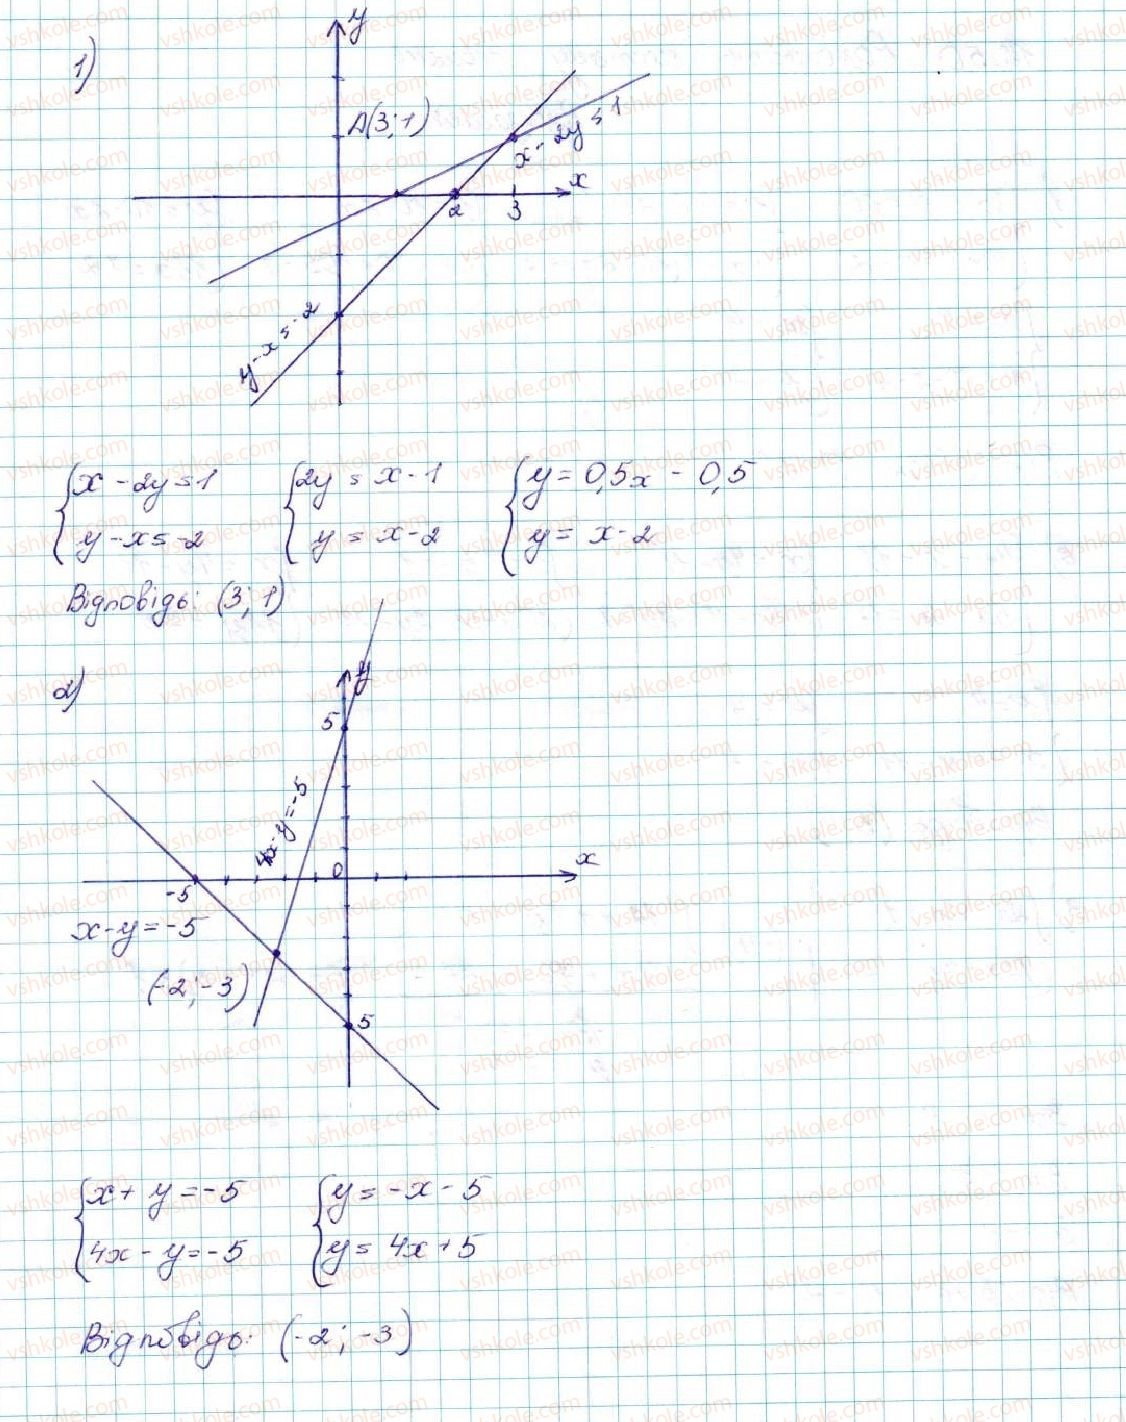 1)
y
A(3;1)
x - 2y = 1
x
2 3
y - x = -2
{x - 2y = 1 {2y = x - 1 {y = 0,5x - 0,5
{y - x = -2 {y = x - 2 {y = x - 2
Відповідь: (3; 1)
2)
y
5
4x - y = -5
0
x
-5
x - y = -5
(-2; -3)
5
{x + y = -5 {y = -x - 5
{4x - y = -5 {y = 4x + 5
Відповідь: (-2; -3)
vshkole.com